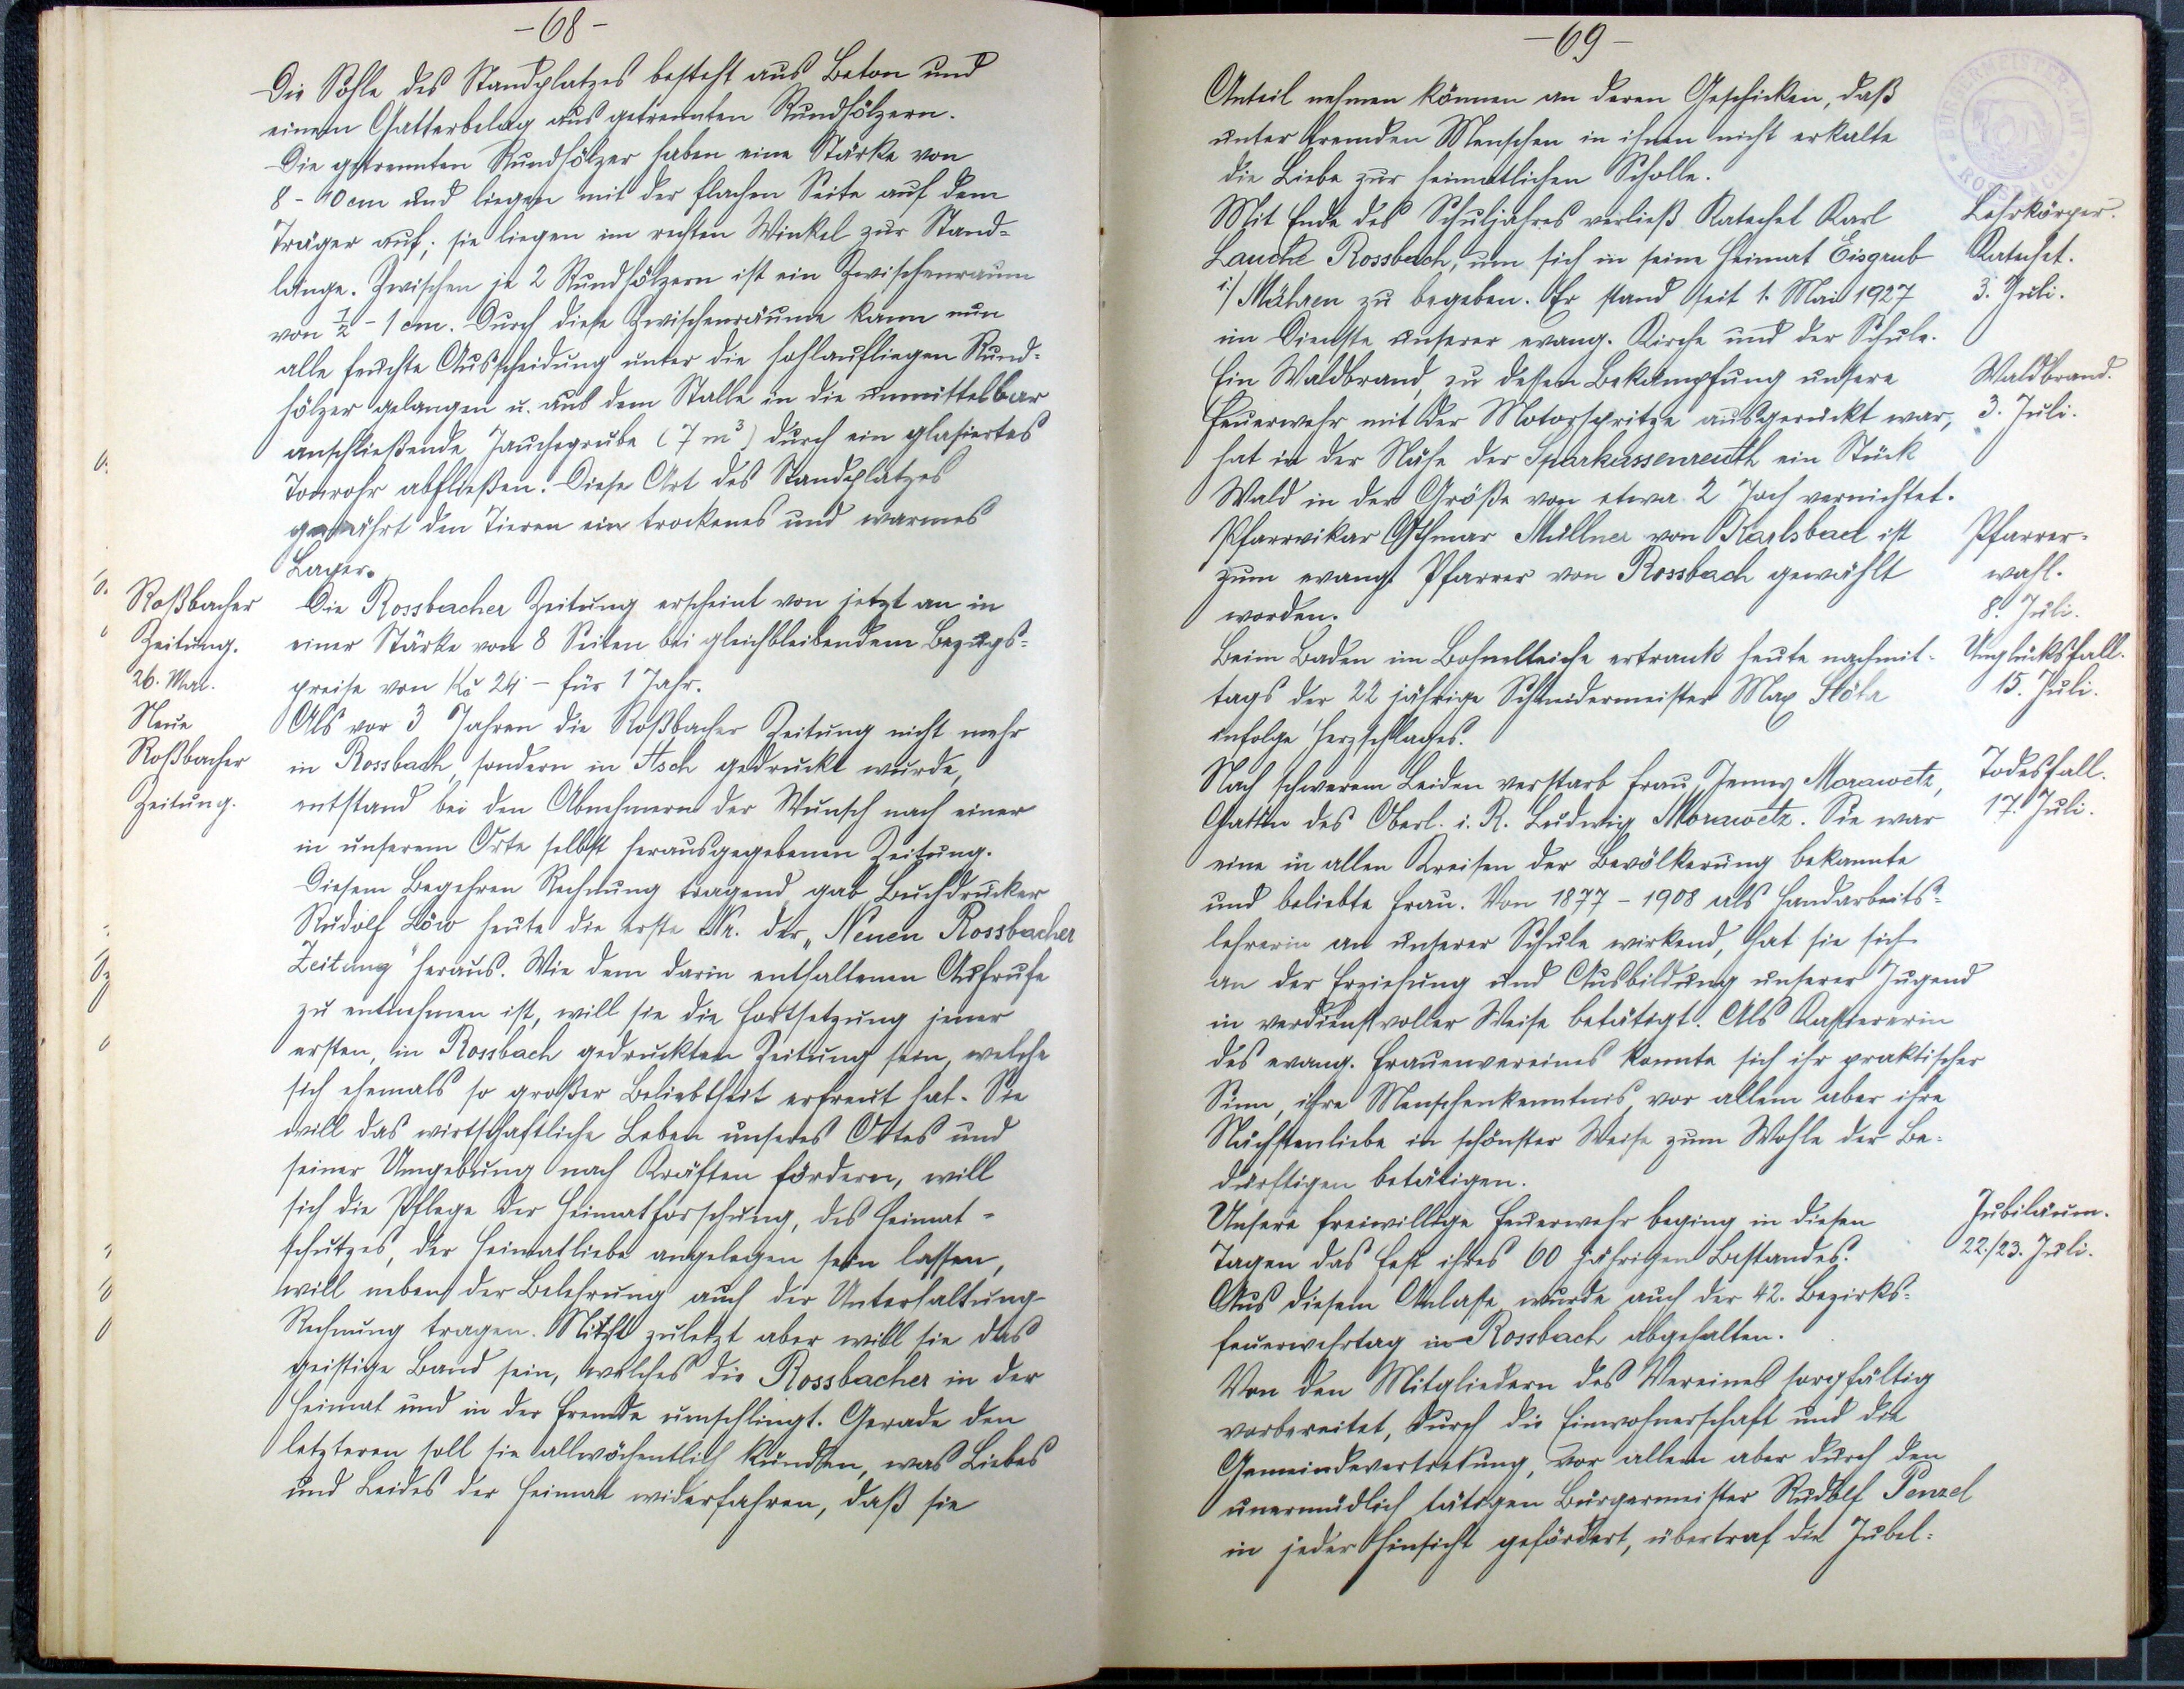 -68-
Die Sohle des Standplatzes besteht aus Beton und
einem Gatterbelag aus getrennten Rundhölzern.
Die getrennten Rundhölzer haben eine Stärke von
8 - 10 cm und liegen mit der flachen Seite auf dem
Träger auf; sie liegen im rechten Winkel zur Stand-
länge. Zwischen je 2 Rundhölzern ist ein Zwischenraum
von ½ - 1 cm. Durch diese Zwischenräume kann nun
alle feuchte Ausscheidung unter die hohlaufliegen Rund-
hölzer gelangen u. aus dem Stalle in die unmittelbar
anschließende Jauchegrube (7 m³) durch ein glasiertes
Tonrohr abfließen. Diese Art des Standplatzes
gewährt den Tieren ein trockenes und warmes
Lager.
Roßbacher
Zeitung.
26. Mai.
Die Rossbacher Zeitung erscheint von jetzt an in
einer Stärke von 8 Seiten bei gleichbleibendem Bezugs-
preise von Kč 24·- für 1 Jahr.
Neue
Roßbacher
Zeitung.
Als vor 3 Jahren die Roßbacher Zeitung nicht mehr
in Rossbach, sondern in Asch gedruckt wurde,
entstand bei den Abnehmern der Wunsch nach einer
in unserem Orte selbst herausgegebenen Zeitung.
Diesem Begehren Rechnung tragend gab Buchdrucker
Rudolf Löw heute die erste Nr. der „Neuen Rossbacher
Zeitung" heraus. Wie dem darin enthaltenen Aufrufe
zu entnehmen ist, will sie die Fortsetzung jener
ersten, in Rossbach gedruckten Zeitung sein, welche
sich ehemals so großer Beliebtheit erfreut hat. Sie
will das wirtschaftliche Leben unseres Ortes und
seiner Umgebung nach Kräften fördern, will
sich die Pflege der Heimatforschung, des Heimat-
schutzes, der Heimatliebe angelegen sein lassen,
will neben der Belehrung auch der Unterhaltung
Rechnung tragen. Nicht zuletzt aber will sie das
geistige Band sein, welches die Rossbacher in der
Heimat und in der Fremde umschlingt. Gerade den
letzteren soll sie allwöchentlich künden, was Liebes
und Leides der Heimat widerfahren, daß sie
-69-
BÜRGERMEISTERAMT
ROSSBACH
Anteil nehmen können an deren Geschicken, daß
unter fremden Menschen in ihnen nicht erkalte
die Liebe zur heimatlichen Scholle.
Mit Ende des Schuljahres verließ Katechet Karl
Lauche Rossbach, um sich in seine Heimat Eisgrub
i/ Mähren zu begeben. Er stand seit 1. Mai 1927
im Dienste unserer evang. Kirche und der Schule.
Lehrkörper.
Katechet.
3. Juli.
Ein Waldbrand, zu dessen Bekämpfung unsere
Feuerwehr mit der Motorspritze ausgerückt war,
hat in der Nähe der Sparkassenreuth ein Stück
Wald in der Größe von etwa 2 Joch vernichtet.
Waldbrand.
3. Juli.
Pfarrvikar Othmar Müllner von Karlsbad ist
zum evang. Pfarrer von Rossbach gewählt
worden.
Pfarrer-
wahl.
8. Juli.
Beim Baden im ertrank heute nachmit-
tags der 22 jährige Schneidermeister Max Stöhr
infolge Herzschlages.
Unglücksfall.
15. Juli.
Nach schwerem Leiden verstarb Frau Jenny Morawetz,
Gattin des Oberl. i. R. Ludwig Morawetz. Sie war
eine in allen Kreisen der Bevölkerung bekannte
und beliebte Frau. Von 1877 - 1908 als Handarbeits-
lehrerin an unserer Schule wirkend, hat sie sich
an der Erziehung und Ausbildung unserer Jugend
in verdienstvoller Weise betätigt. Als Kassiererin
des evang. Frauenvereines konnte sich ihr praktischer
Sinn, ihre Menschenkenntnis, vor allem aber ihre
Nächstenliebe in schönster Weise zum Wohle der Be-
dürftigen betätigen.
Todesfall.
17. Juli.
Unsere freiwillige Feuerwehr beging in diesen
Tagen das Fest ihres 60 jährigen Bestandes.
Aus diesem Anlasse wurde auch der 42. Bezirks-
feuerwehrtag in Rossbach abgehalten.
Von den Mitgliedern des Vereines sorgfältig
vorbereitet, durch die Einwohnerschaft und die
Gemeindevertretung, vor allem aber durch den
unermüdlich tätigen Bürgermeister Rudolf Penzel
in jeder Hinsicht gefördert, übertraf die Jubel-
Jubiläum.
22./23. Juli.